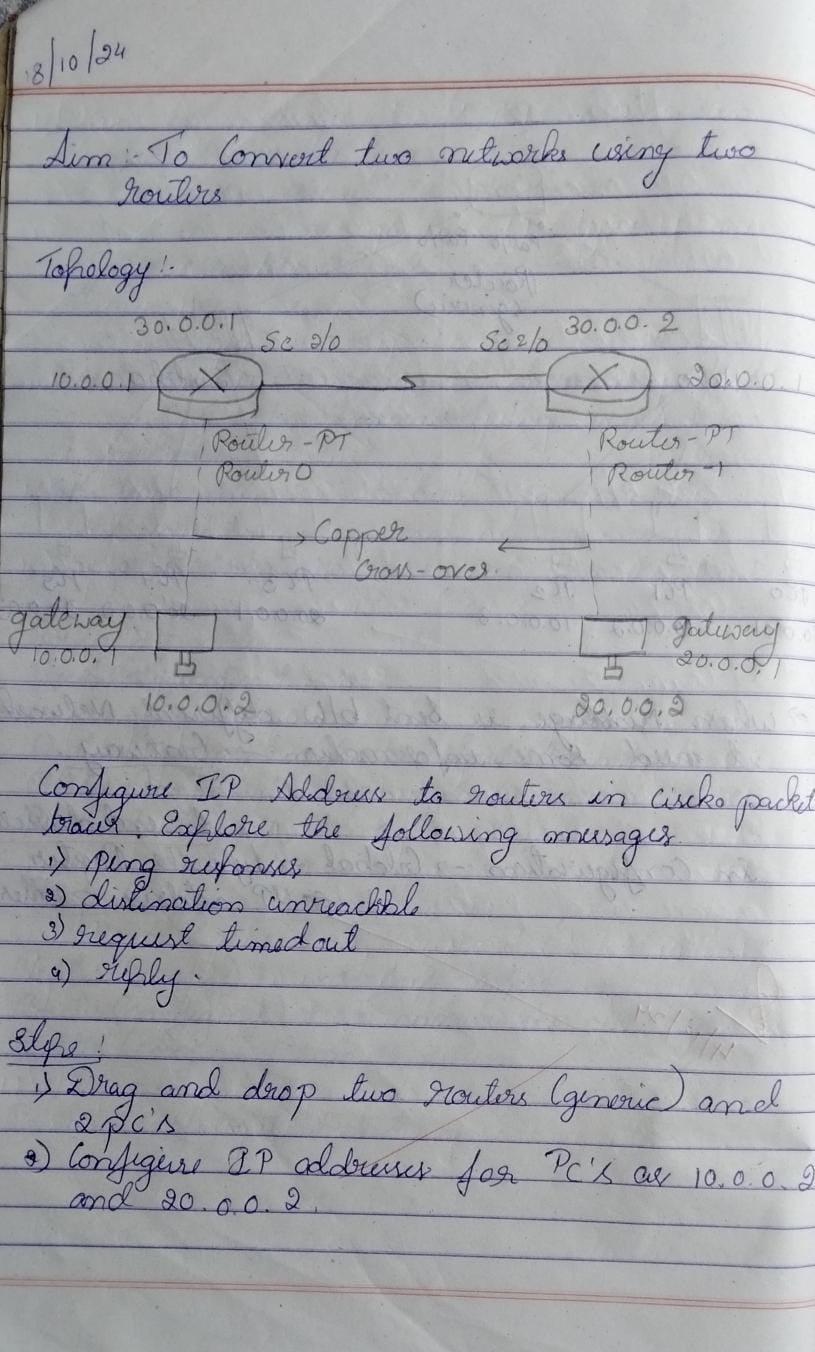 8/10/24
Aim :- To Convert two networks using two
routers
Topology :-
30.0.0.1 30.0.0.2
Se 2/0 Se 2/0
10.0.0.1 20.0.0.1
Router-PT Router-PT
Router 0 Router-1
Copper
Cross-over.
gateway gateway
10.0.0.1 20.0.0.1
10.0.0.2 20.0.0.2
Configure IP Address to routers in cisko packet
tracer. Explore the following messages
1) ping responses
2) distination unreachble
3) request timed out
4) reply.
Steps :
1) Drag and drop two routers (generic) and
2 PC's
2) Configure IP addresses for PC's as 10.0.0.2
and 20.0.0.2.